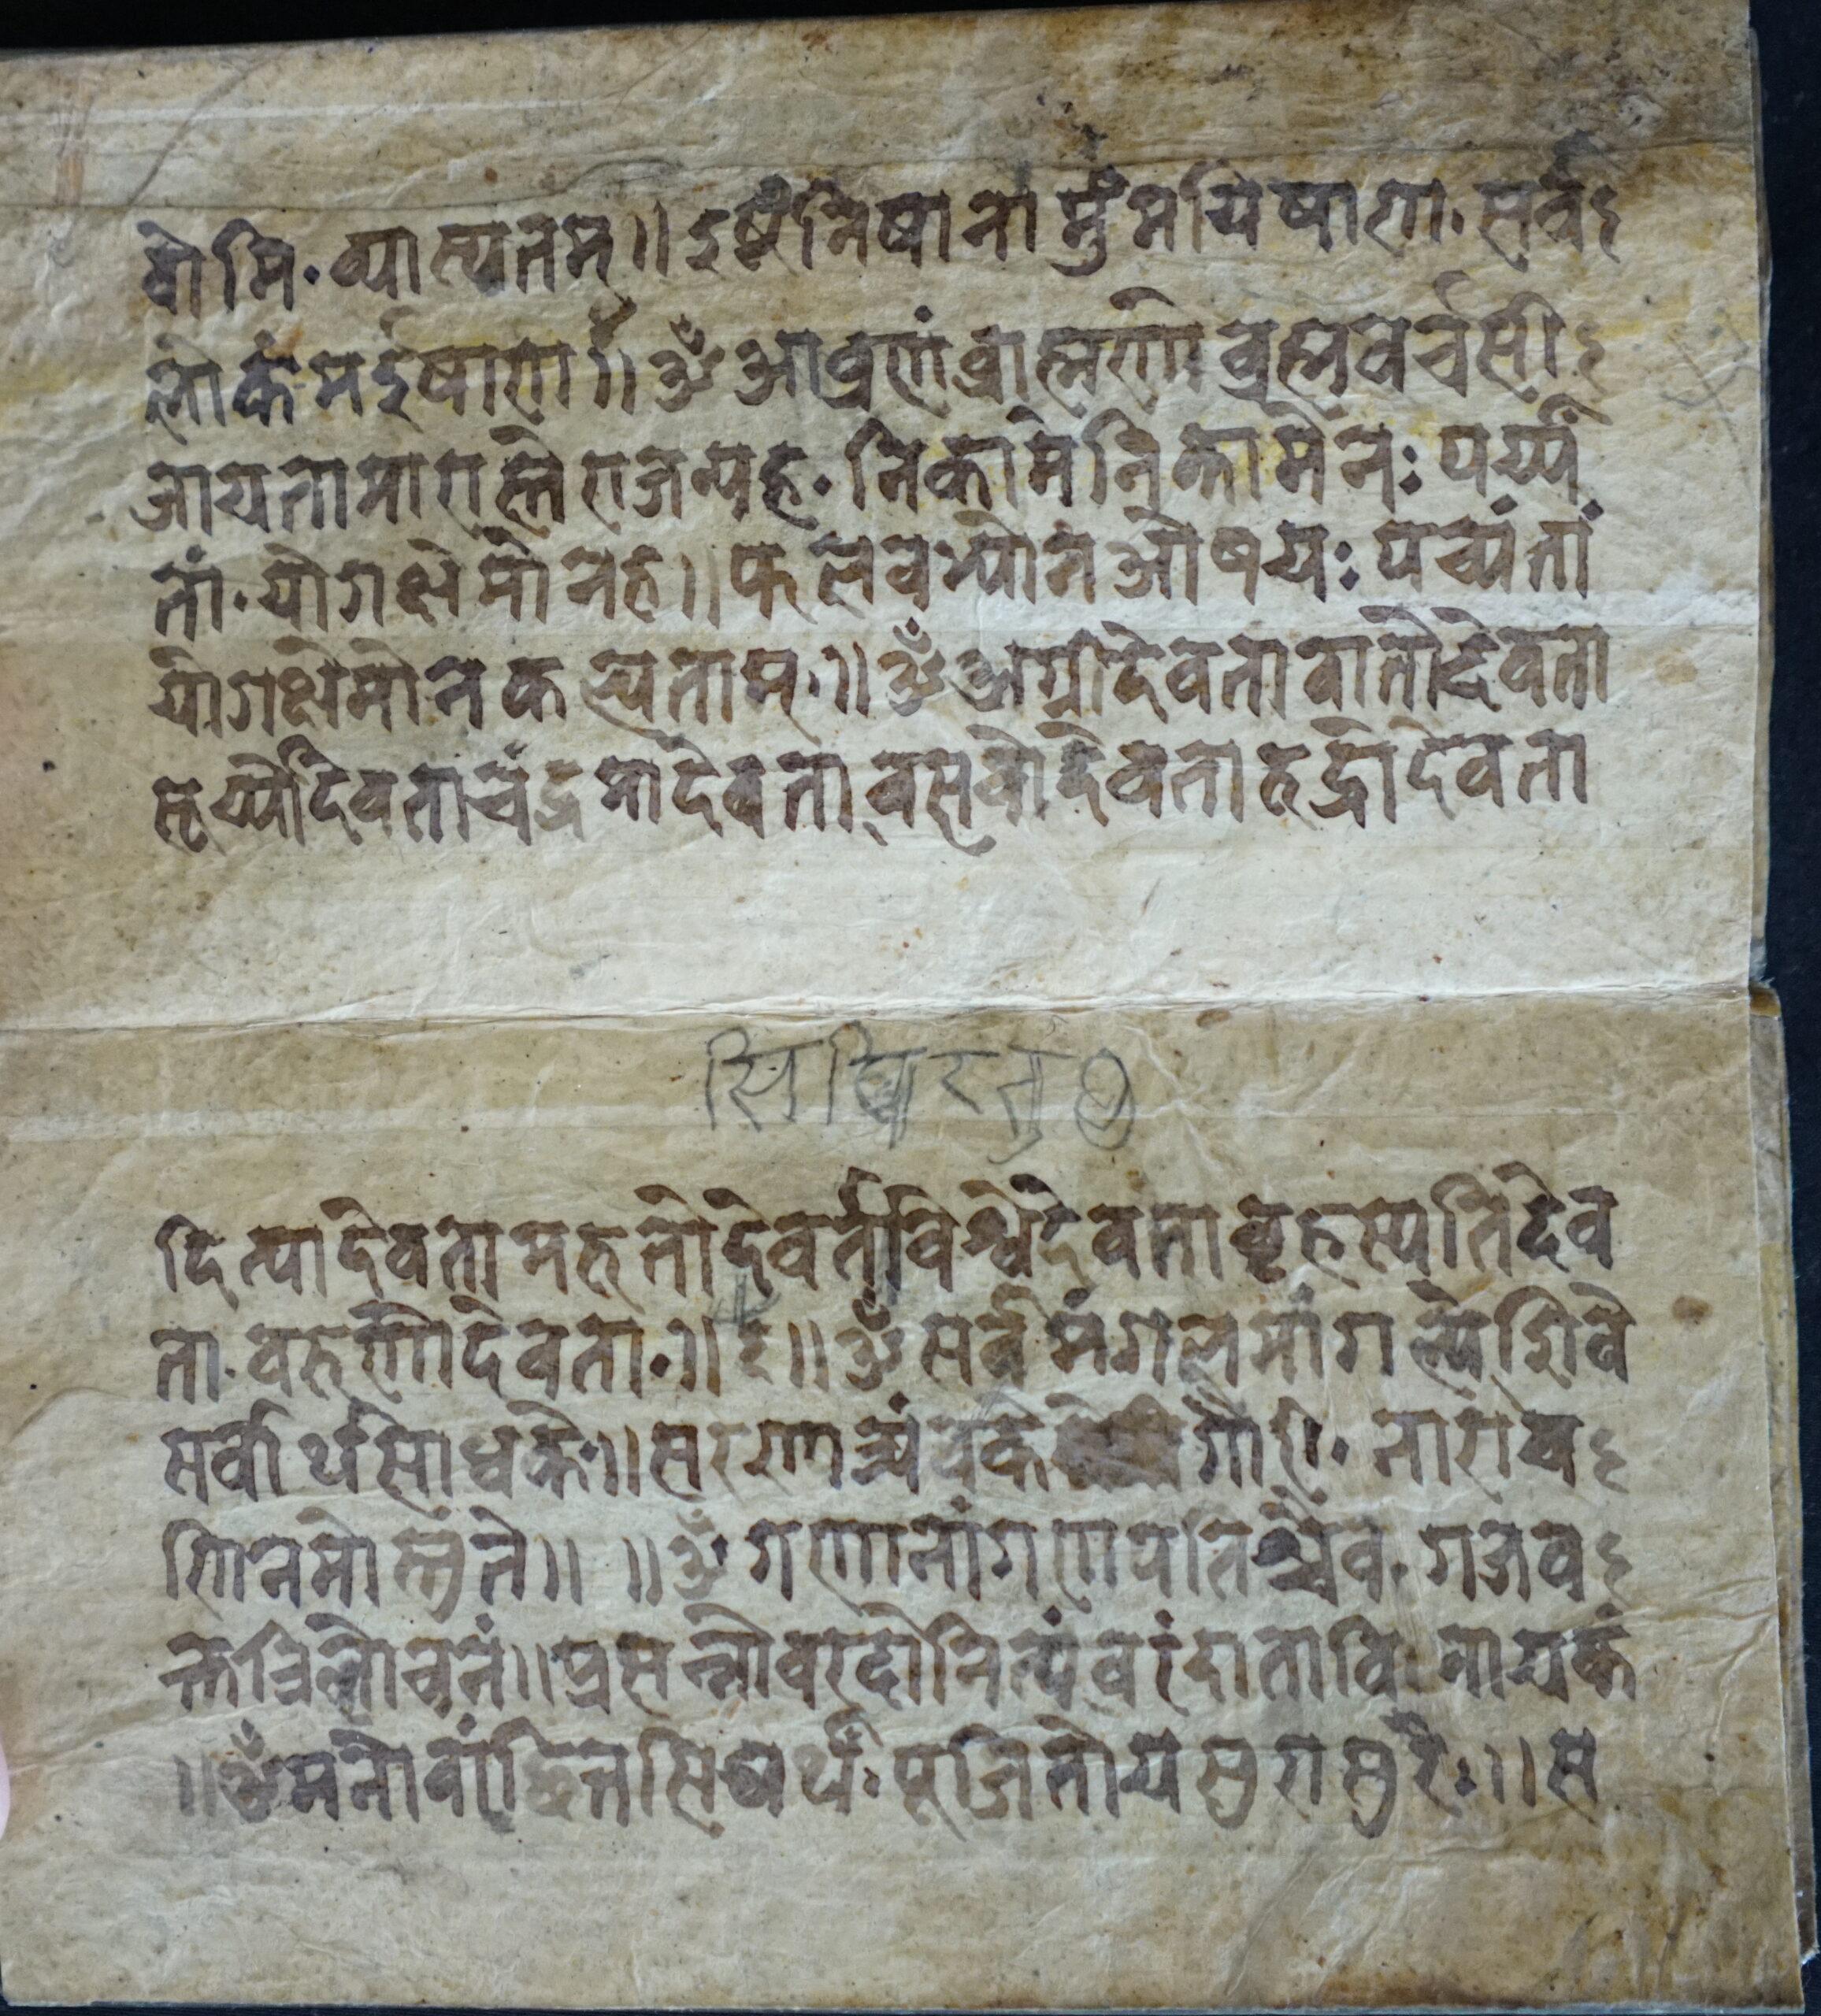 वोमि·व्यास्यतम्॥इष्टंनिषानामुंमयिषाण·सर्व्व
लोकंमईषाण॥ॐआव्रह्मंव्राह्मणोव्रह्मवर्चसी
जायतामाराष्ट्रेराजन्यह·निकामेनिकामेनः पर्य्यं
तां·योगक्षेमोनह॥फलवभ्योनओषयः पच्यंतां
योगक्षेमोनकल्पताम्॥ॐअग्नीदेवतावातोदेवता
सूर्य्योदेवताचंद्रमादेवतावसवोदेवतारुद्रोदेवता
सिद्धिरस्तु
दित्यादेवतामरुतोदेवतविश्वेदेवतावृहस्पतिदेव
ता·वरुणोदेवता·॥ ॥ॐसर्वमंगलमांगल्येशिवे
सर्वार्थसाधके॥सरणत्र्यंवके गौरी·नाराय
णिनमोस्तुते॥ ॥ॐगणानांगणपतिश्चैव·गजव
क्तत्रिलोचनं॥प्रसन्नोवरदोनित्यंवरंदाताविनायकं
॥ॐमनोवांछितसिध्यर्थं·पूजितोयसुरासुरैः॥स